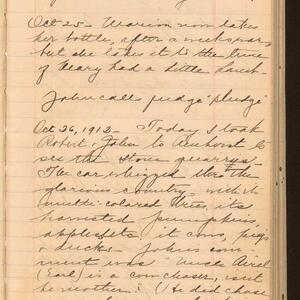 Oct 25 - Marion now takes
her bottle, after a week's
but she takes it to the tune
of Mary had a little lamb.
John calls fudge "pludge"
Oct 26, 1912 - Today I took
Robert & John to Amherst to
see the stone quarrys -
The car whizzed thro the
glorious country, with its
multi-colored trees, its
harvested pumpkins,
apples, its cows, pigs
& ducks. John's com-
ment was "Uncle Averil
(Earl) is a cow chaser, isn't
he mother? (He did chase